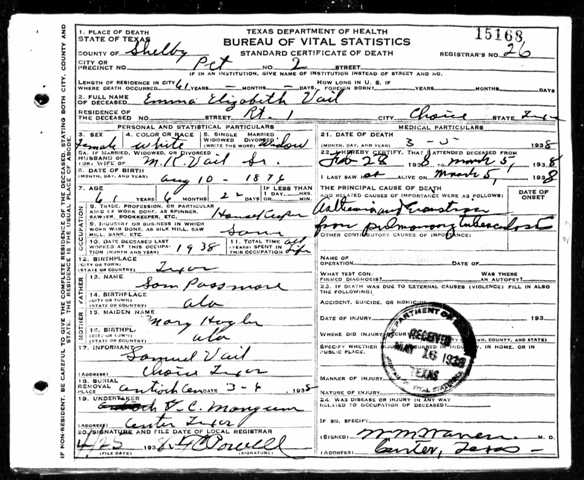 TEXAS DEPARTMENT OF HEALTH
BUREAU OF VITAL STATISTICS
STANDARD CERTIFICATE OF DEATH
15168
REGISTRAR'S NO. 26
1. PLACE OF DEATH
STATE OF TEXAS
COUNTY OF Shelby
CITY OR
PRECINCT NO. Pct NO. 2 STREET
IF IN AN INSTITUTION, GIVE NAME OF INSTITUTION INSTEAD OF STREET AND NO.
LENGTH OF RESIDENCE IN CITY
WHERE DEATH OCCURRED 61 YEARS — MONTHS — DAYS
HOW LONG IN U. S. IF
FOREIGN BORN? YEARS MONTHS DAYS
2. FULL NAME
OF DECEASED Emma Elizabeth Vail
RESIDENCE OF
THE DECEASED NO. STREET Rt. 1 CITY Choice STATE Texas
PERSONAL AND STATISTICAL PARTICULARS
3. SEX 4. COLOR OR RACE 5. SINGLE MARRIED
WIDOWED DIVORCED
(WRITE THE WORD)
Female White Widow
5A. IF MARRIED, WIDOWED, OR DIVORCED
HUSBAND OF
OR WIFE OF M. R. Vail Sr.
6. DATE OF BIRTH
(MONTH, DAY, AND YEAR) Aug 10 - 1876
7. AGE YEARS MONTHS DAYS IF LESS THAN
1 DAY
61 6 22 HRS. MIN.
8. TRADE, PROFESSION, OR PARTICULAR
KIND OF WORK DONE, AS SPINNER,
SAWYER, BOOKKEEPER, ETC. House Keeper
9. INDUSTRY OR BUSINESS IN WHICH
WORK WAS DONE, AS SILK MILL, SAW
MILL, BANK, ETC. Same
10. DATE DECEASED LAST
WORKED AT THIS OCCUPATION
(MONTH AND YEAR) 1938
11. TOTAL TIME
(YEARS) SPENT IN
THIS OCCUPATION All Life
12. BIRTHPLACE
(CITY OR TOWN)
(STATE OR COUNTRY) Texas
FATHER
13. NAME Sam Passmore
14. BIRTHPLACE
(CITY OR TOWN)
(STATE OR COUNTRY) Ala
MOTHER
15. MAIDEN NAME Mary
16. BIRTHPL.
(CITY OR TOWN)
(STATE OR COUNTRY) Ala
17. INFORMANT Samuel Vail
(ADDRESS) Choice Texas
18. BURIAL
REMOVAL
PLACE Antioch Cem DATE 3-6 1938
19. UNDERTAKER C. Mangum
(ADDRESS) Center Texas
20. SIGNATURE AND FILE OF LOCAL REGISTRAR
193 Powell
(FILE DATE) (SIGNATURE)
MEDICAL PARTICULARS
21. DATE OF DEATH
(MONTH, DAY, AND YEAR) 3 - 5 - 1938
22. I HEREBY CERTIFY, THAT I ATTENDED DECEASED
FROM Feb 28 1938 TO March 5, 1938
I LAST SAW ALIVE ON March 5, 1938
THE PRINCIPAL CAUSE OF DEATH
AND RELATED CAUSES OF IMPORTANCE WERE AS FOLLOWS:
DATE OF
ONSET
from pulmonary tuberculosis
OTHER CONTRIBUTORY CAUSES OF IMPORTANCE:
NAME OF
OPERATION DATE OF
WHAT TEST CONFIRMED DIAGNOSIS? WAS THERE
AN AUTOPSY?
23. IF DEATH WAS DUE TO EXTERNAL CAUSES (VIOLENCE) FILL IN ALSO
THE FOLLOWING:
ACCIDENT, SUICIDE, OR HOMICIDE
DATE OF INJURY 193
WHERE DID INJURY OCCUR?
SPECIFY WHETHER INJURY OCCURRED IN INDUSTRY, IN HOME, OR IN
PUBLIC PLACE.
DEPARTMENT OF HEALTH
RECEIVED
MAY 16 1938
TEXAS
BUREAU OF VITAL STATISTICS
MANNER OF INJURY
NATURE OF INJURY
24. WAS DISEASE OR INJURY IN ANY WAY
RELATED TO OCCUPATION OF DECEASED?
IF SO, SPECIFY
(SIGNED) W M Warren M. D.
(ADDRESS) Center, Texas